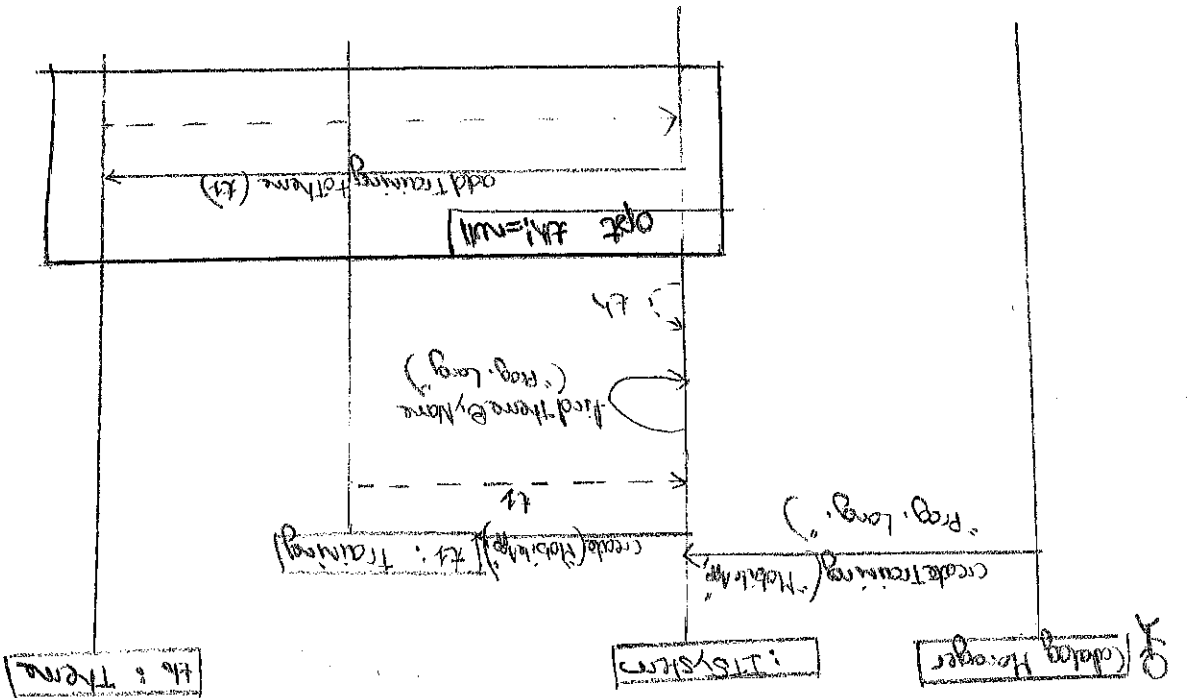 Catalog Manager
: ITSystem
th : Theme
createTraining("MobileApp",
"Prog. Lang.")
create("MobileApp")
t1 : Training
t1
findThemeByName
("Prog. Lang.")
: th
opt th!=null
addTrainingToTheme (t1)